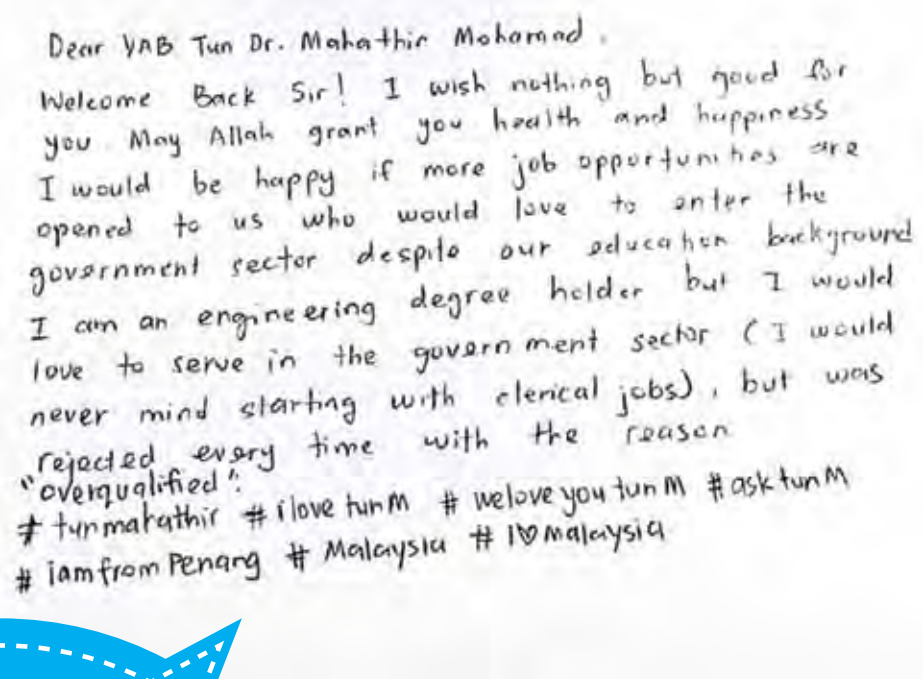 Dear YAB Tun Dr. Mahathir Mohamad.
Welcome Back Sir! I wish nothing but good for
you. May Allah grant you health and happiness
I would be happy if more job opportunities are
opened to us who would love to enter the
government sector despite our education background
I am an engineering degree holder but I would
love to serve in the government sector (I would
never mind starting with clerical jobs), but was
rejected every time with the reason
"overqualified".
# tunmahathir # ilove tunM # weloveyoutunM #asktunM
# iamfromPenang # Malaysia # I♡malaysia